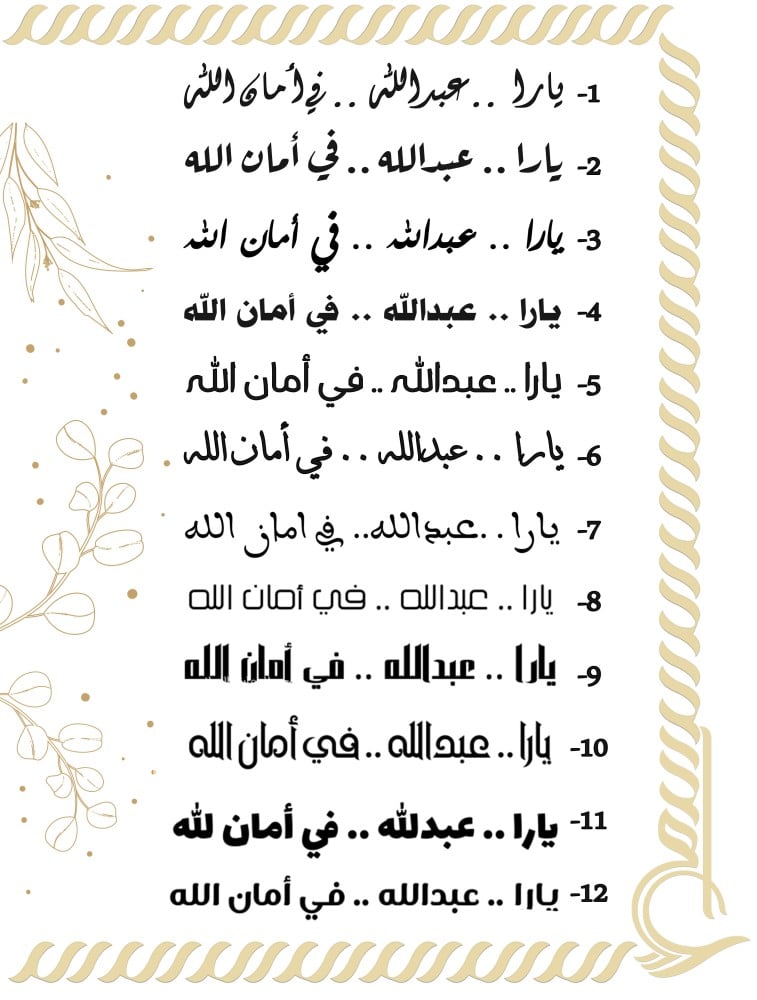 1- يارا .. عبدالله .. في أمان الله
2- يارا .. عبدالله .. في أمان الله
3- يارا .. عبدالله .. في أمان الله
4- يارا .. عبدالله .. في أمان الله
5- يارا .. عبدالله .. في أمان الله
6- يارا .. عبدالله .. في أمان الله
7- يارا .. عبدالله .. في امان الله
8- يارا .. عبدالله .. في أمان الله
9- يارا .. عبدالله .. في أمان الله
10- يارا .. عبدالله .. في أمان الله
11- يارا .. عبدلله .. في أمان لله
12- يارا .. عبدالله .. في أمان الله